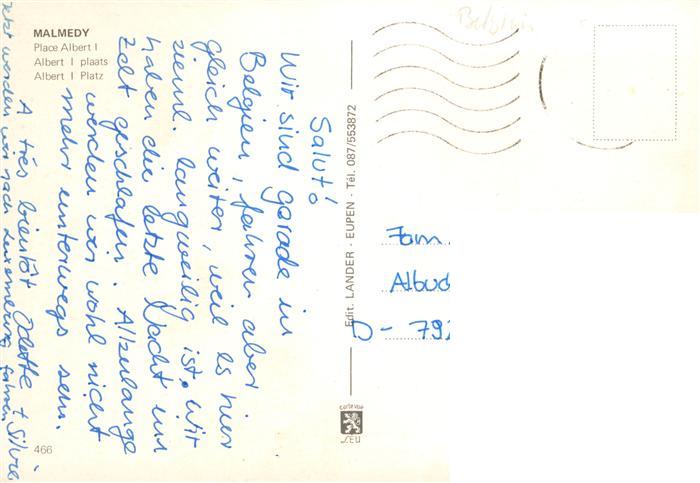 MALMEDY
Place Albert I
Albert I plaats
Albert I Platz
Salut!
Wir sind gerade in
Belgien, fahren aber
gleich weiter, weil es hier
zieml. langweilig ist. Wir
haben die letzte Nacht im
Zelt geschlafen. Allzulange
werden wir wohl nicht
mehr unterwegs sein.
A très bientôt Odette + Silvie
Jetzt werden wir nach Luxemburg fahren.
466
Edit. LANDER - EUPEN - Tél. 087/553872
Belgien
Fam.
Albud
D - 792